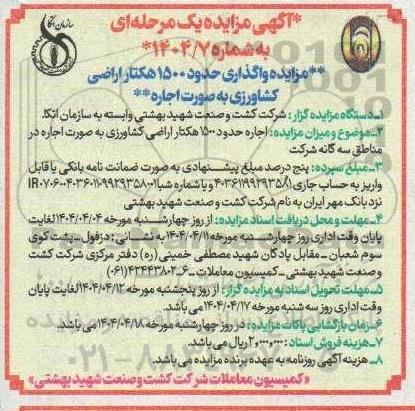 سازمان اتکا
*آگهی مزایده یک مرحله‌ای
به شماره ۱۴۰۴/۷*
**مزایده واگذاری حدود ۱۵۰۰ هکتار اراضی
کشاورزی به صورت اجاره**
۱ـ دستگاه مزایده گزار: شرکت کشت و صنعت شهید بهشتی وابسته به سازمان اتکا.
۲ـ موضوع و میزان مزایده: اجاره حدود ۱۵۰۰ هکتار اراضی کشاورزی به صورت اجاره در
مناطق سه گانه شرکت
۳ـ مبلغ سپرده: پنج درصد مبلغ پیشنهادی به صورت ضمانت نامه بانکی یا قابل
واریز به حساب جاری
نزد بانک مهر ایران به نام شرکت کشت و صنعت شهید بهشتی
۴ـ مهلت و محل دریافت اسناد مزایده: از روز چهارشنبه مورخه ۱۴۰۴/۰۴/۰۴ لغایت
پایان وقت اداری روز چهارشنبه مورخه ۱۴۰۴/۰۴/۱۱ به نشانی: دزفول ـ پشت کوی
سوم شعبان ـ مقابل پادگان شهید مصطفی خمینی (ره) دفتر مرکزی شرکت کشت
و صنعت شهید بهشتی ـ کمیسیون معاملات ـ
۵ـ مهلت تحویل اسناد به مزایده گزار: از روز پنجشنبه مورخه ۱۴۰۴/۰۴/۱۲ لغایت پایان
وقت اداری روز سه شنبه مورخه ۱۴۰۴/۰۴/۱۷ می‌باشد.
۶ـ زمان بازگشایی پاکات مزایده: در روز چهارشنبه مورخه ۱۴۰۴/۰۴/۱۸ می‌باشد.
۷ـ هزینه فروش اسناد: ۲،۰۰۰،۰۰۰ ریال می باشد.
۸ـ هزینه آگهی روزنامه به عهده برنده مزایده می باشد.
«کمیسیون معاملات شرکت کشت و صنعت شهید بهشتی»